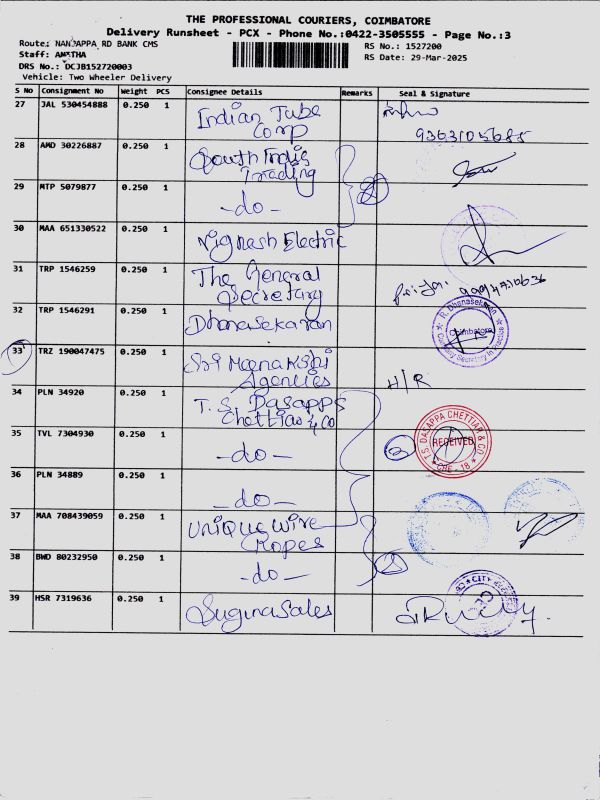 THE PROFESSIONAL COURIERS, COIMBATORE
Delivery Runsheet - PCX - Phone No.:0422-3505555 - Page No.:3
Route: NANJAPPA RD BANK CMS
RS No.: 1527200
Staff: AMRTHA
RS Date: 29-Mar-2025
DRS No.: DCJB152720003
Vehicle: Two Wheeler Delivery
S No Consignment No Weight PCS Consignee Details Remarks Seal & Signature
27 JAL 530454888 0.250 1 Indian Tube
Corp
9363105685
28 AMD 30226887 0.250 1 South India
Trading
29 MTP 5079877 0.250 1 -do-
30 MAA 651330522 0.250 1 Vignesh Electric
31 TRP 1546259 0.250 1 The General
Secretary
32 TRP 1546291 0.250 1 Dhanasekaran
R. Dhanasekaran
Coimbatore
Company Secretary in Practice
33 TRZ 190047475 0.250 1 Sri Meenakshi
Agencies
H/R
34 PLN 34920 0.250 1 T. S Dasappa
Chettiar & Co
35 TVL 7304930 0.250 1 -do-
T.S. DASAPPA CHETTIAR & CO
RECEIVED
CBE - 18
36 PLN 34889 0.250 1 -do-
37 MAA 708439059 0.250 1 Unique Wire
Ropes
38 BWD 80232950 0.250 1 -do-
39 HSR 7319636 0.250 1 Suguna Sales